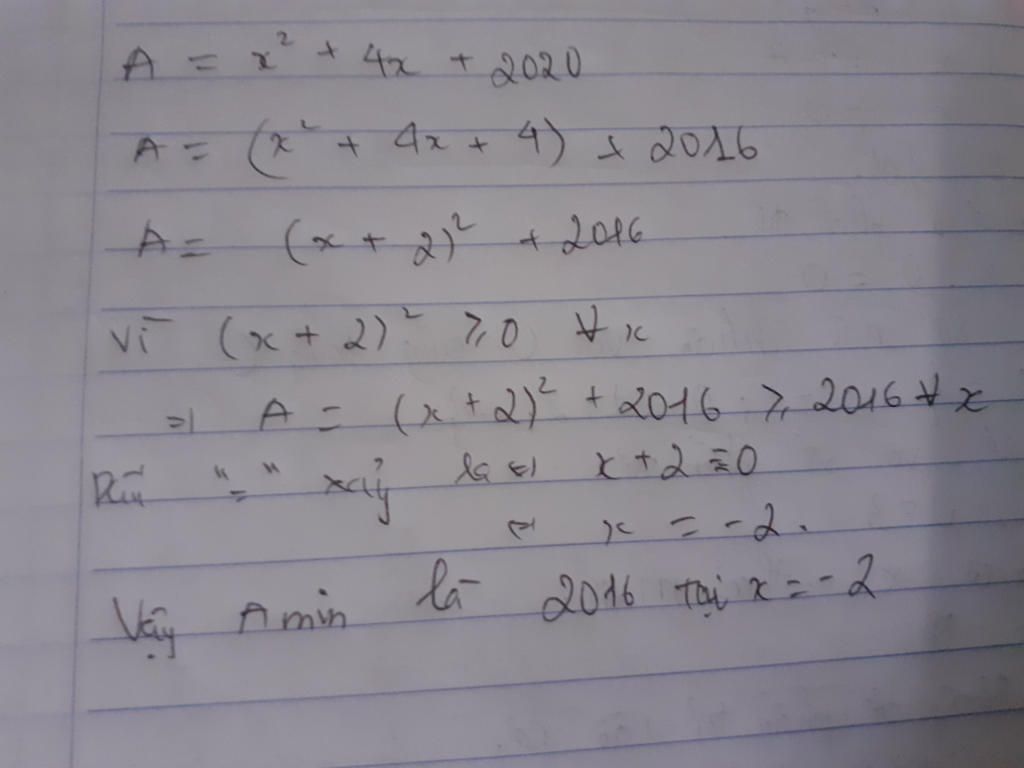 A = x² + 4x + 2020
A = (x² + 4x + 4) + 2016
A = (x + 2)² + 2016
Vì (x + 2)² ≥ 0 ∀ x
=> A = (x + 2)² + 2016 ≥ 2016 ∀ x
Dấu "=" xảy ra <=> x + 2 = 0
<=> x = -2.
Vậy A min là 2016 tại x = -2